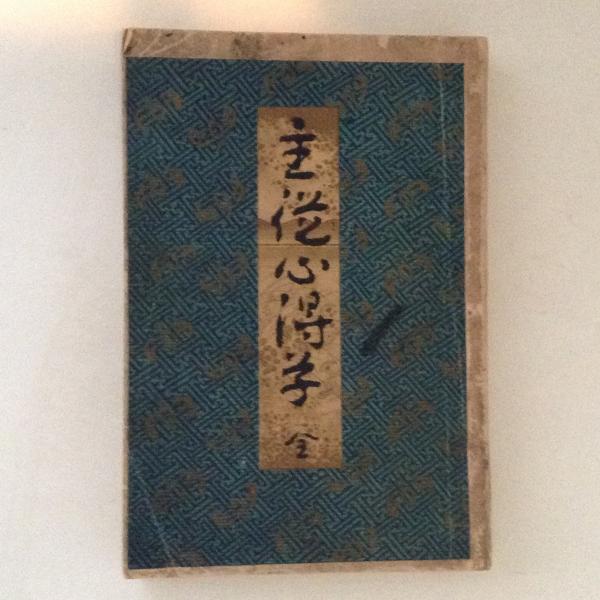 主従心得草 全